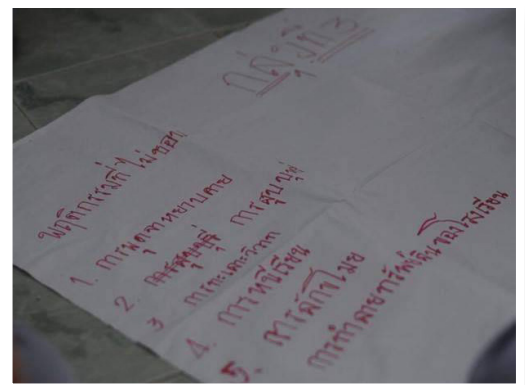 กลุ่มที่ 3
พฤติกรรมที่ไม่ชอบ
1. การพูดจาหยาบคาย
2. การสูบบุหรี่ การสูบบุหรี่
3 การทะเลาะวิวาท
4. การหนีเรียน
5. การลักขโมย
การทำลายทรัพย์สินของโรงเรียน